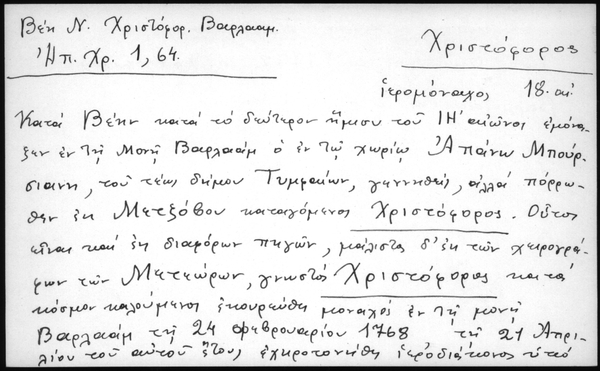 Βέη Ν. Χριστόφορ. Βαρλαάμ.
Ἠπ. Χρ. 1, 64.
Χριστόφορος
ἱερομόναχος 18. αἰ.
Κατά Βέην κατά τό δεύτερον ἥμισυ τοῦ ΙΗ' αἰῶνος ἐμόνα-
ζεν ἐν τῇ Μονῇ Βαρλαάμ ὁ ἐν τῷ χωρίῳ Ἀπάνω Μπούρ-
σιανη, τοῦ τέως δήμου Τυμφαίων, γεννηθείς, ἀλλά πόρρω-
θεν ἐκ Μετσόβου καταγόμενος Χριστόφορος. Οὗτος
εἶναι καί ἐκ διαφόρων πηγῶν, μάλιστα δ' ἐκ τῶν χειρογρά-
φων τῶν Μετεώρων, γνωστός Χριστόφορος κατά
κόσμον καλούμενος ἐκουρεύθη μοναχός ἐν τῇ μονῇ
Βαρλαάμ τῇ 24 Φεβρουαρίου 1768 τῇ 21 Ἀπρι-
λίου τοῦ αὐτοῦ ἔτους ἐχειροτονήθη ἱεροδιάκονος ὑπό